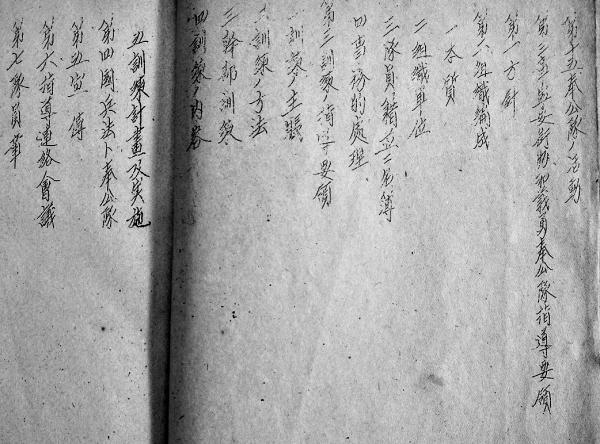 第十五奉公隊ノ活動
第三章 與蘭物和義勇奉公隊指導要領
第一方針
第六組織編成
一本質
二組織單位
三隊員ノ籍並ニ名簿
四事務的處理
第三訓練指導要領
一訓禁ノ主眼
二訓練ノ方法
三幹部訓禁
四訓練ノ内容
五訓練計畫及実施
第四國兵法ト奉公隊
第五宣傳
第六指導連絡會議
第七隊員章